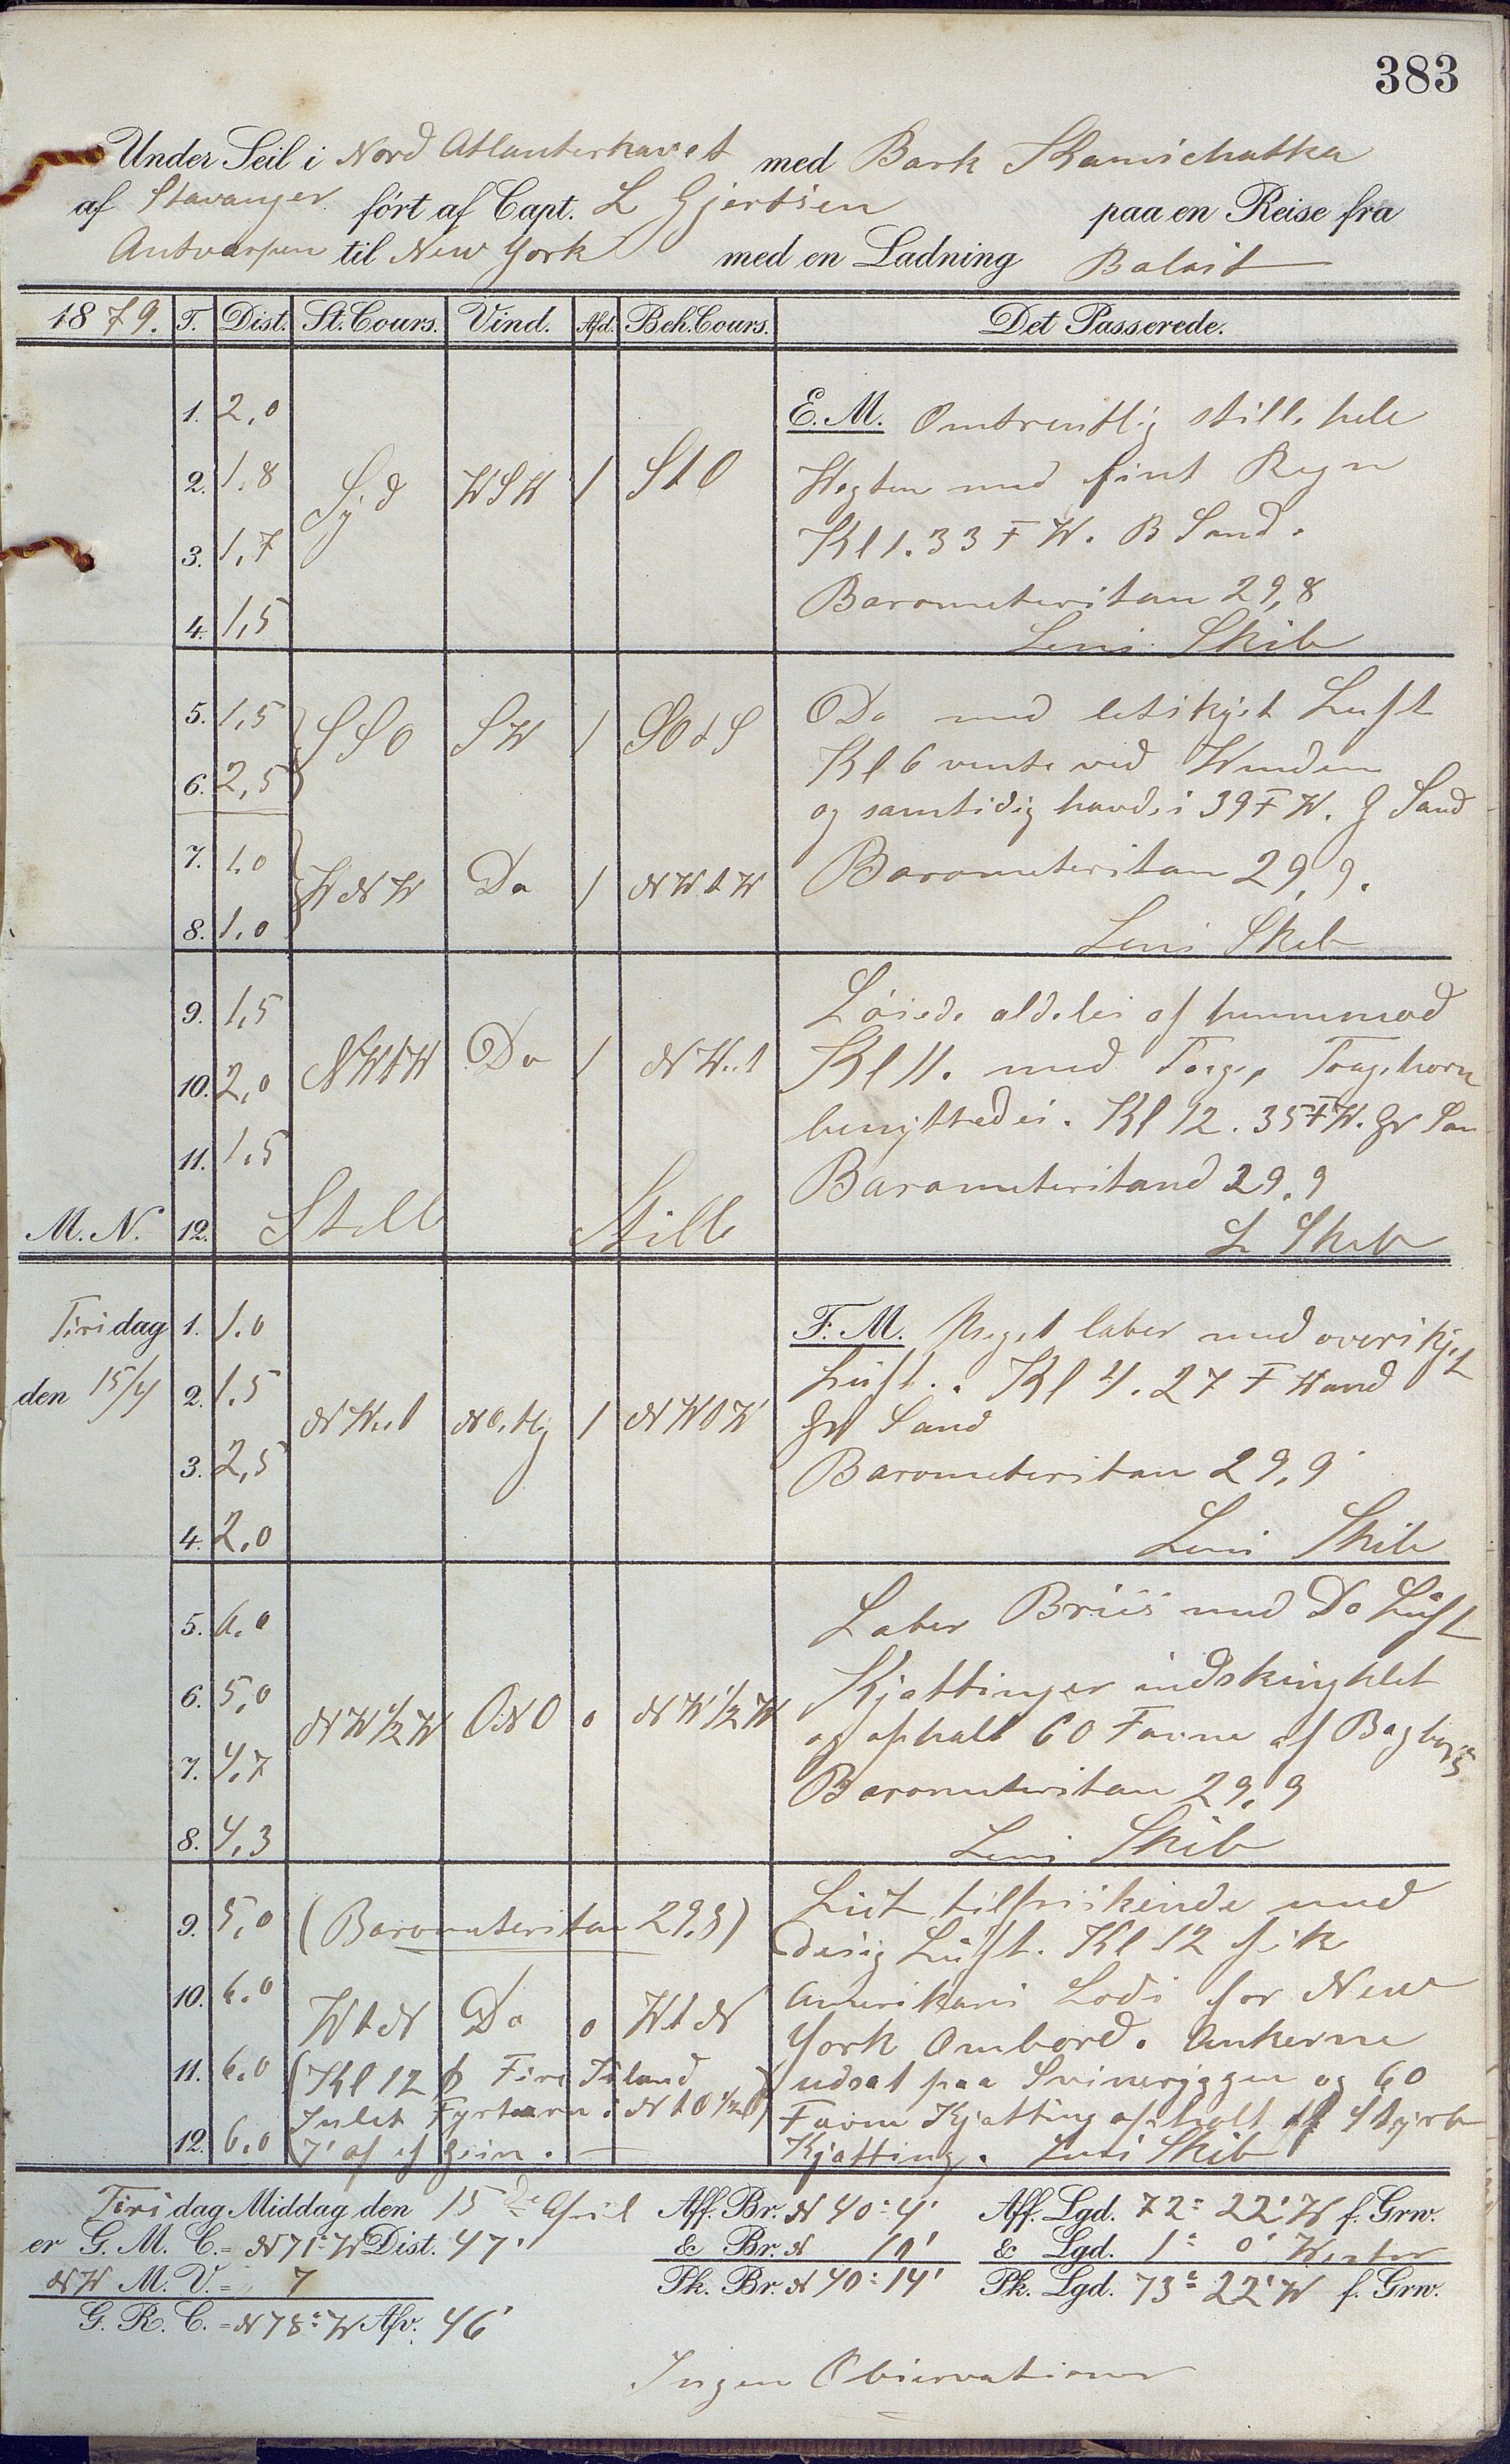 383
Under Seil i Nord Atlanterhavet med Bark Kamschatka
af Stavanger ført af Capt. L Gjertsen paa en Reise fra
Antwerpen til New York med en Ladning Balast
1879. T. Dist. St. Cours. Vind. Afd. Beh. Cours. Det Passerede.
1. 2,0 E. M. Omtrentlig stille hele
2. 1,8 Syd WSW 1 StO Wagten med fint Regn
3. 1,7 Kl 1. 33 F W. B Sand.
4. 1,5 Barometerstan 29,8
Lens Skib
5. 1,5 SSO SW 1 SOtS Do med letskyet Luft
6. 2,5 Kl 6 vente ved Winden
og samtidig havde i 39 F W. G Sand
7. 1.0 WNW Do 1 NWtW Barometerstan 29,9.
8. 1.0 Lens Skib
9. 1,5 Løiede aldeles af henimod
10. 2,0 NWtW Do 1 NWest Kl 11. med Taage, Taagehorn
11. 1.5 benyttedes. Kl 12. 35 F W. Gr San
Barometerstand 29.9
M. N. 12. Stille Stille L Skib
Tirsdag 1. 1.0 F. M. Meget laber med overskyet
den 15/4 2. 1.5 NWest NOstlig 1 NWtW Luft. Kl 4. 27 F Wand
Gr Sand
3. 2,5 Barometerstan 29,9
4. 2.0 Lens Skib
5. 6.0 Laber Briis med Do Luft
6. 5,0 NW 1/2 W ONO 0 NW 1/2 W Kjættinger
7. 4,7 og ophalt 60 Favne af Bagbords
Barometerstan 29,9
8. 4,3 Lens Skib
9. 5,0 (Barometerstan 29.8) Lidt tilfriskende med
disig Luft. Kl 12 fik
10. 6.0 WtN Do 0 WtN Amerikans Lods for New
York Ombord. Ankerne
11. 6.0 (Kl 12 Fire Island udsat paa Svineryggen og 60
Inlet Fyrtaarn i NtO 1/2 O Favne Kjætting ophalt af Styrb
12. 6.0 7' af Kjætting. Lens Skib
Tirsdag Middag den 15de April Aff. Br. N 40° 4' Aff. Lgd. 72° 22' W f. Grw.
er G. M. C. = N 71° W Dist. 47' & Br. N 10' & Lgd. 1° 0' Wester
NW M. V. = 7 Pk. Br. N 40° 14' Pk. Lgd. 73° 22' W f. Grw.
G. R. C. = N 78° W Afv. 46'
Ingen Observationer